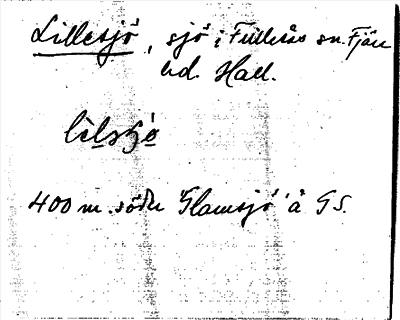 Lillesjö, sjö i Füllerås sn. Fjäre
hd. Hall.
lìlsjö
400 m. söder "Glamsjö" å GS.